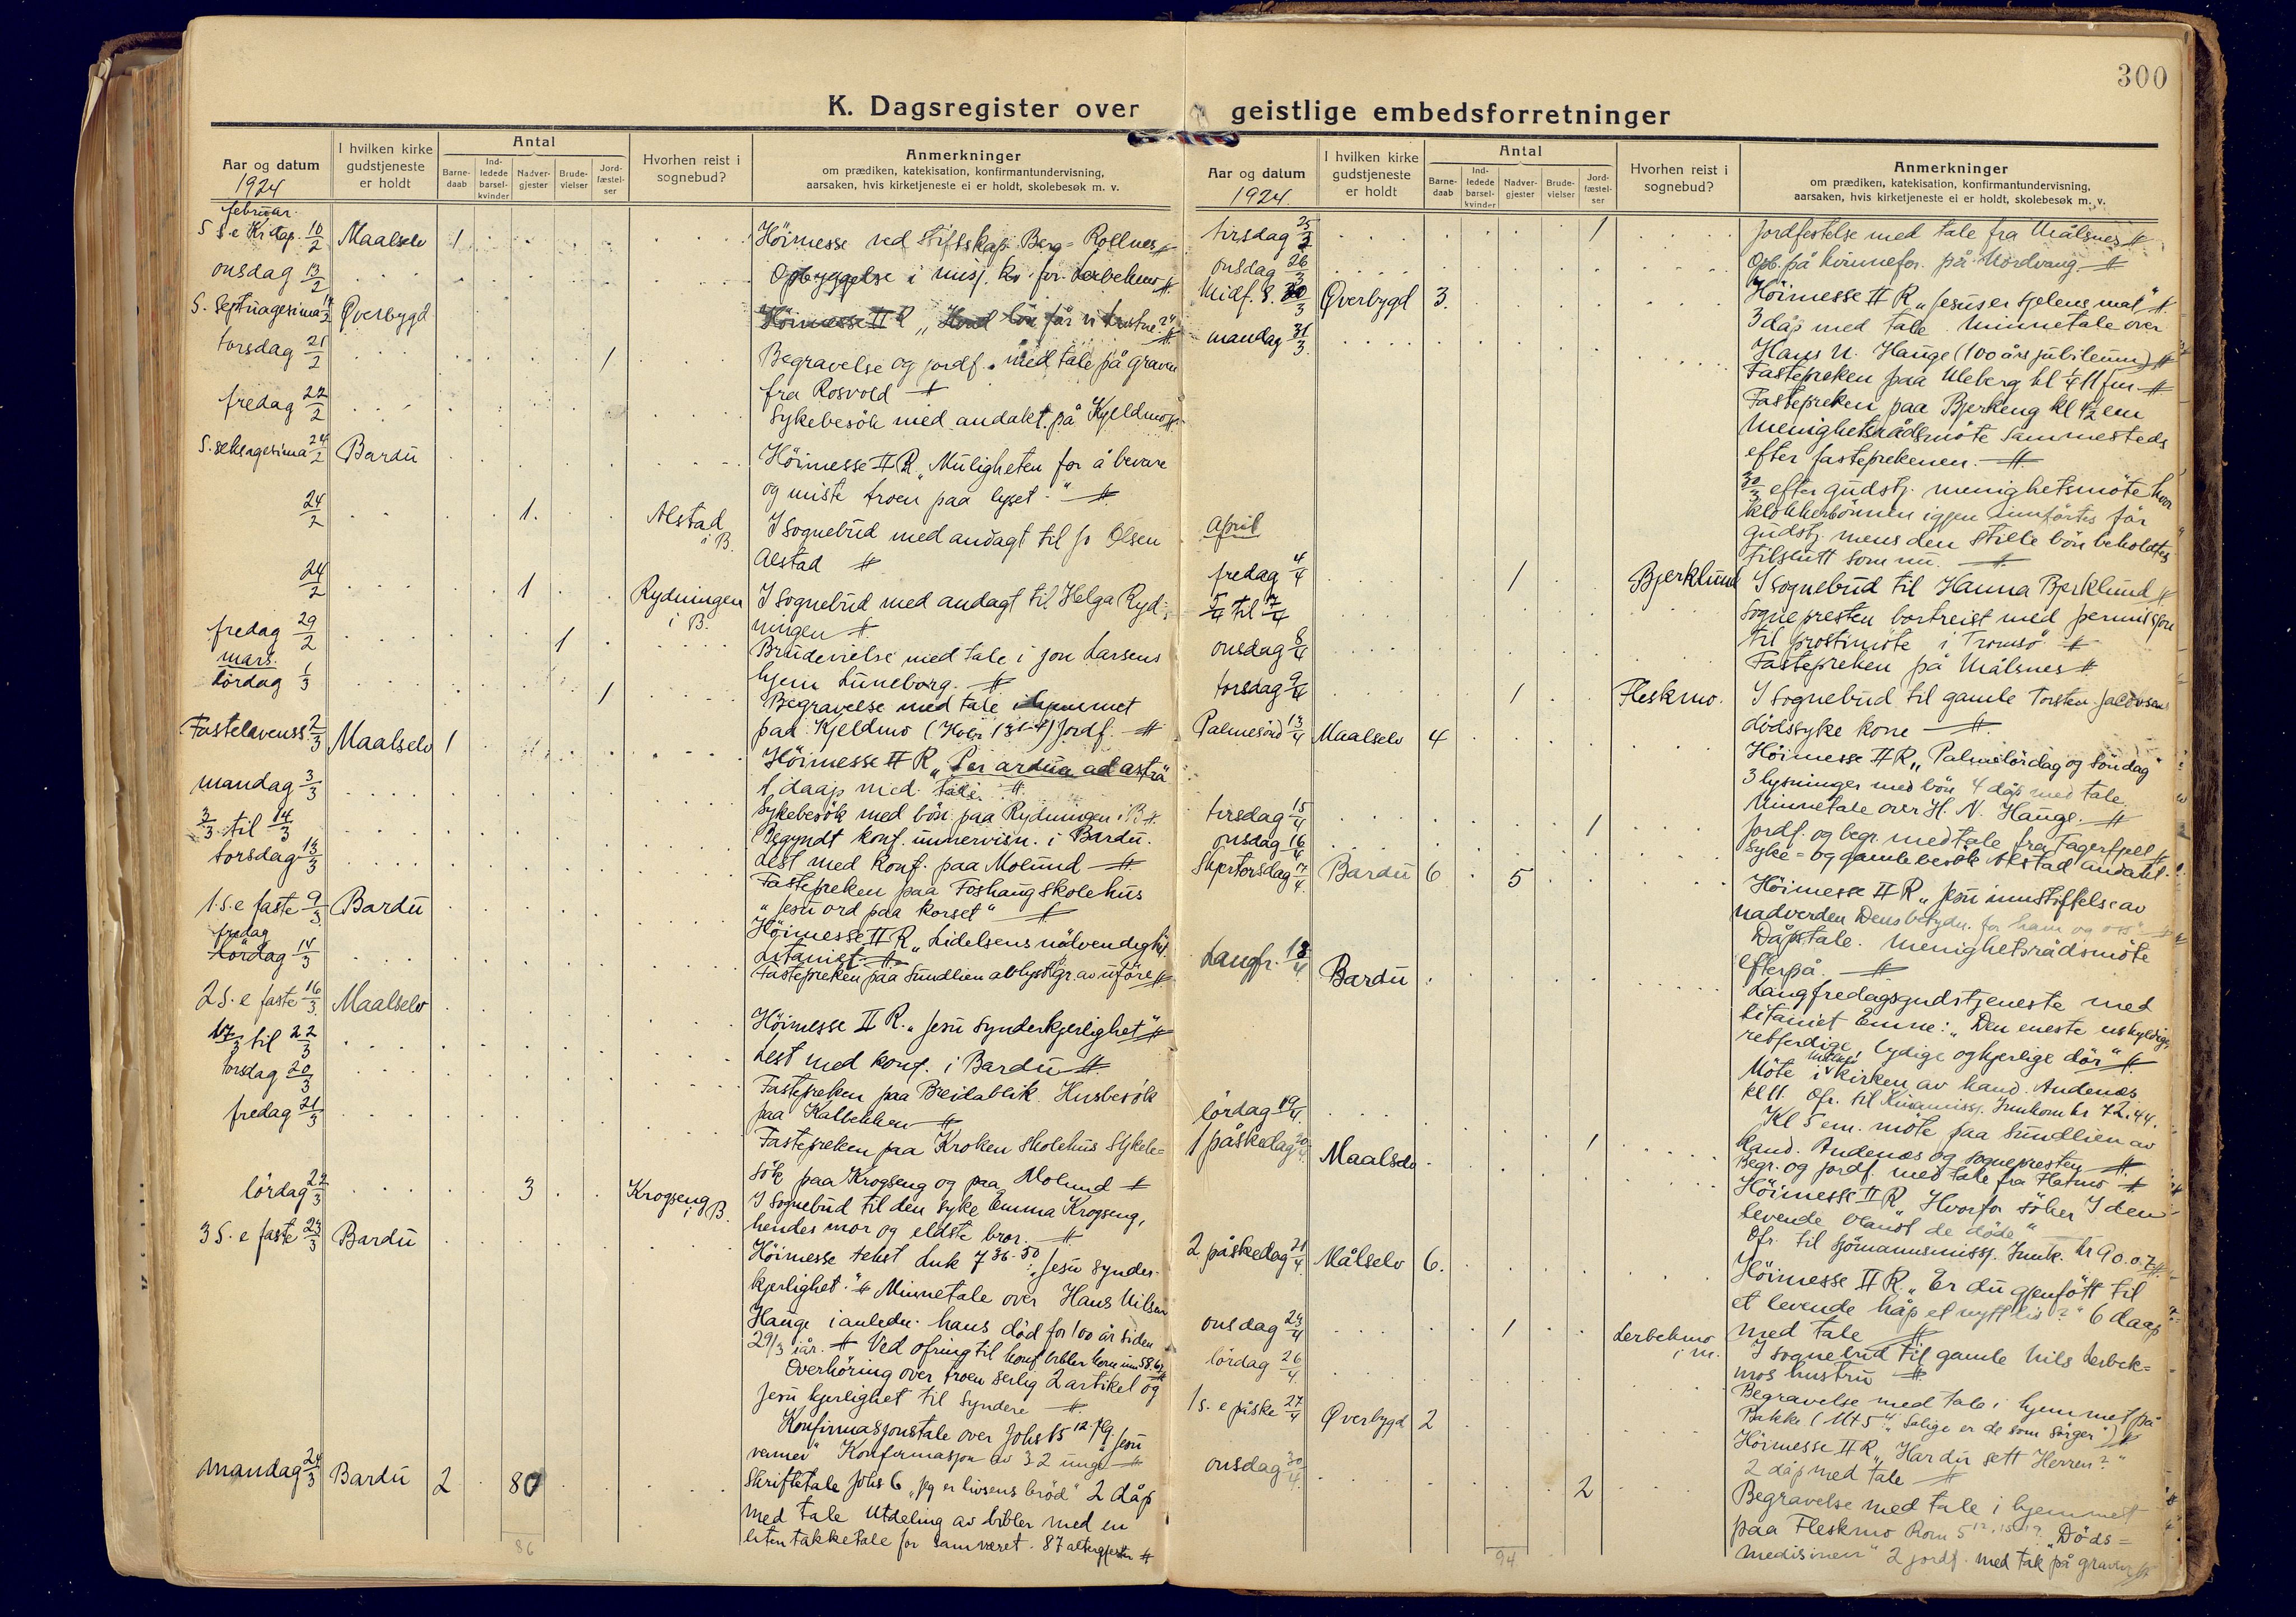 300
K. Dagsregister over geistlige embedsforretninger
Aar og datum
1924
I hvilken kirke gudstjeneste er holdt
Antal
Barne-daab
Ind-ledede barsel-kvinder
Nadver-gjester
Brude-vielser
Jord-fæstel-ser
Hvorhen reist i sognebud?
Anmerkninger
om prædiken, katekisation, konfirmantundervisning,
aarsaken, hvis kirketjeneste ei er holdt, skolebesøk m. v.
februar.
5 S. e Kr. dag. 10/2 Maalselv 1 Höimesse ved stiftskap. Berg-Rollnes
onsdag 13/2 Opbyggelse i misj. kv. for. Lerbekmo
S. Septuagesima 17/2 Øverbygd Höimesse II R
torsdag 21/2 1 Begravelse og jordf. med tale på graven
fra Rosvold
fredag 22/2 Sykebesök med andakt på Kjeldmo
S. seksagesima 24/2 Bardu Höimesse II R. "Muligheten for å bevare
og miste troen paa lyset."
24/2 1. Alstad i B. I sognebud med andagt til Jo Olsen
Alstad
24/2 1 Rydningen i B. I sognebud med andagt til Helga Ryd-
ningen
fredag 29/2 1 Brudevielse med tale i Jon Larsens
hjem Luneborg.
mars.
lördag 1/3 1 Begravelse med tale i hjemmet
paa Kjeldmo Jordf.
Fastelavenss 2/3 Maalselv 1 Höimesse II R "Per ardua ad astra
1 daap med tale
mandag 3/3 Sykebesök med bön paa Rydningen i B
3/3 til 14/3 Begyndt konf. unnervisn. i Bardu.
Lest med konf. paa Molund
torsdag 13/3 Fastepreken paa Foshaug skolehus
"Jesu ord paa korset"
1. S. e faste 9/3 Bardu Höimesse II R "Lidelsens nödvendighet.
Litaniet
fredag
lördag 14/3 Fastepreken paa Sundlien avlyst gr. av uføre
2 S. e faste 16/3 Maalselv Höimesse II R. "Jesu synderkjerlighet"
17/3 til 22/3 Lest med konf. i Bardu
torsdag 20/3 Fastepreken paa Breidablik. Husbesök
paa Kalbekken
fredag 21/3 Fastepreken paa Kroken skolehus Sykebe-
sök paa Krogseng og paa Molund
lördag 22/3 3 Krogseng i B. I sognebud til den syke Emma Krogseng,
hendes mor og eldste bror.
3 S. e faste 23/3 Bardu Höimesse tekst Luk 7 36-50 "Jesu synder-
kjerlighet." Minnetale over Hans Nilsen
Hauge i anledn. hans död for 100 år siden
29/3 iår. Ved ofring til konf bibler kom inn 58.62
Overhöring over troen serlig 2 artikel og
Jesu kjerlighet til syndere
Konfirmasjonstale over Johs 15 12. flg. "Jesu
venner" Konfirmasjon av 32 unge
mandag 24/3 Bardu 2 80 Skriftetale Johs 6 "Jeg er livsens bröd" 2 dåp
med tale Utdeling av bibler med en
liten takketale for samværet. 87 altergjester
86
Aar og datum
1924.
I hvilken kirke gudstjeneste er holdt
Antal
Barne-daab
Ind-ledede barsel-kvinder
Nadver-gjester
Brude-vielser
Jord-fæstel-ser
Hvorhen reist i sognebud?
Anmerkninger
om prædiken, katekisation, konfirmantundervisning,
aarsaken, hvis kirketjeneste ei er holdt, skolebesøk m. v.
tirsdag 25/3 1 Jordfestelse med tale fra Målsnes
onsdag 26/3 Opb. på kvinnefor. på Nordvang
Midf. S. 30/3 Øverbygd 3. Höimesse II R "Jesus er sjelens mat"
3 dåp med tale. Minnetale over
Hans N. Hauge (100 års jubileum)
mandag 31/3 Fastepreken paa Uleberg kl 1/4 11 fm
Fastepreken paa Bjerkeng kl 4 1/2 em
Menighetsrådsmöte sammesteds
efter fasteprekenen.
30/3 efter gudstj. menighetsmöte hvor
klokkerbönnen igjen innförtes för
gudstj. mens den stille bön beholdtes
tilslutt som nu.
April
fredag 4/4 1 Bjerklund I sognebud til Hanna Bjerklund
5/4 til 7/4 Sognepresten bortreist med permisjon
til prostimöte i Tromsö
onsdag 8/4 Fastepreken på Målsnes
torsdag 9/4 1 Fleskmo. I sognebud til gamle Torsten Jacobsens
dödssyke kone
Palmesönd 13/4 Maalselv 4 Höimesse II R "Palmelördag og söndag"
3 lysninger med bön 4 dåp med tale.
Minnetale over H. N. Hauge.
tirsdag 15/4 1 Jordf. og begr. med tale fra Fagerfjell
onsdag 16/4 Syke- og gamlebesök Alstad andakt.
Skjertorsdag 17/4 Bardu 6 5 Höimesse II R "Jesu innstiftelse av
nadverden Dens betydn. for ham og oss"
Dåpstale. Menighetsrådsmöte
efterpå.
Langfr. 18/4 Bardu Langfredagsgudstjeneste med
litaniet Emne: "Den eneste uskyldige
retferdige, lydige og kjerlige dör"
Möte i kirken av kand. Andenæs
kl 11. Ofr. til Kinamissj. Innkom kr 72.44.
Kl 5 em. möte paa Sundlien av
kand. Andenæs og sognepresten
lördag 19/4 1 Begr. og jordf. med tale fra Fleskmo
1 påskedag 20/4 Maalselv Höimesse II R "Hvorfor söker I den
levende blandt de döde"
Ofr. til sjömannsmissj. Innk. kr 90.07
2 påskedag 21/4 Målselv 6. Höimesse II R. "Er du gjenfött til
et levende håp et nytt liv?" 6 daap
med tale
onsdag 23/4 1 Lerbekmo i M. I sognebud til gamle Nils Lerbek-
mos hustru
lördag 26/4 Begravelse med tale i hjemmet på
Bakke (Mt 5 4 "Salige er de som sörger")
1 S. e påske 27/4 Øverbygd 2 Höimesse II R "Har du sett Herren?"
2 dåp med tale
onsdag 30/4 2 Begravelse med tale i hjemmet
paa Fleskmo Rom 5 "Döds-
medisinen" 2 jordf. med tale på graven
94